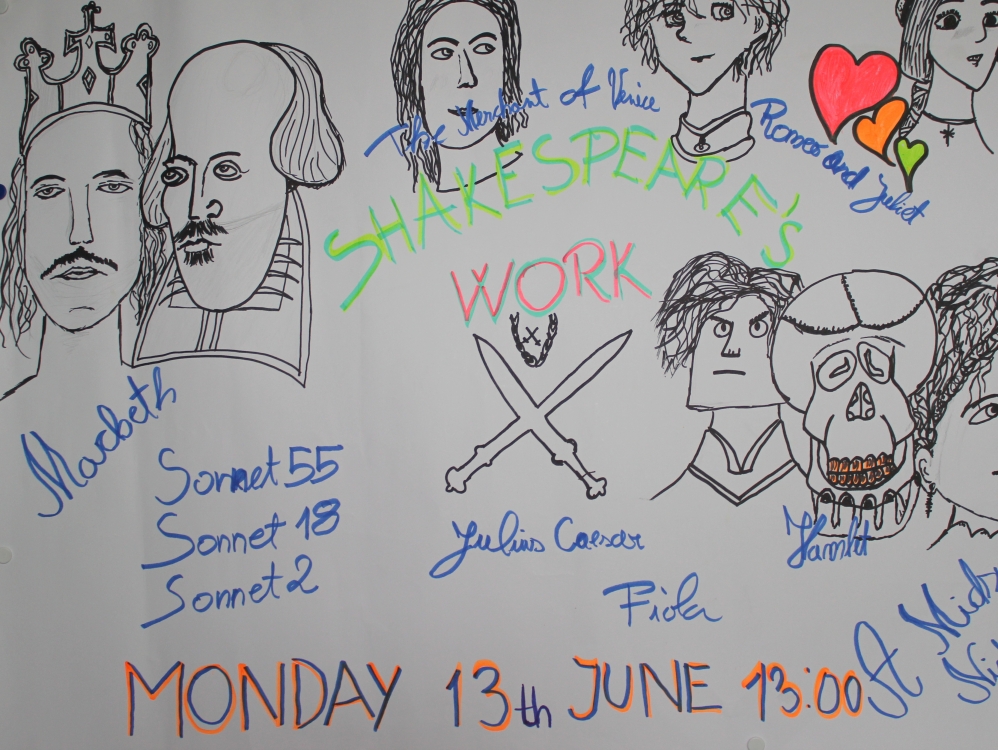 The Merchant of Venice
Romeo and Juliet
SHAKESPEARE's
WORK
Macbeth
Sonnet 55
Sonnet 18
Sonnet 2
Julius Caesar
Hamlet
Fiola
A
MONDAY 13th JUNE 13:00